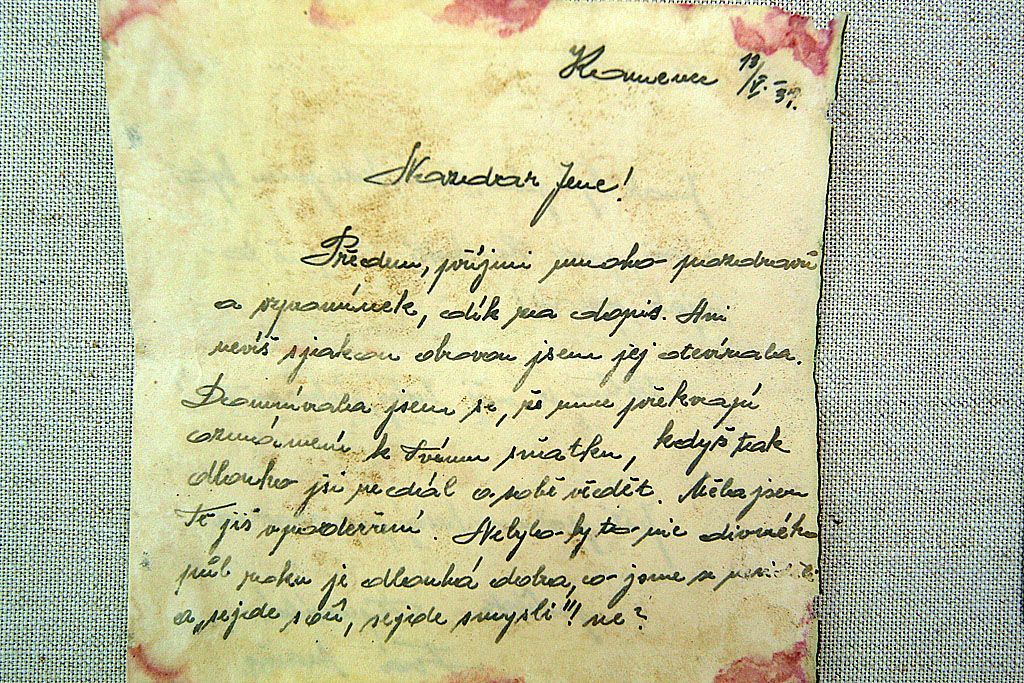 13/V.-37.
Nazdar Jene!
Předem, příjmi mnoho pozdravů
a vzpomínek, dík za dopis. Ani
nevíš s jakou obavou jsem jej otevírala.
Domnívala jsem se, že mne překvapí
oznámení k Tvému sňatku, když tak
dlouho jsi nedál o sobě vědět. Měla jsem
Tě již v podezření. Nebylo-by to nic divného
půl roku je dlouhá doba, co jsme se
a „sejde s očí, sejde smysli"! ne?